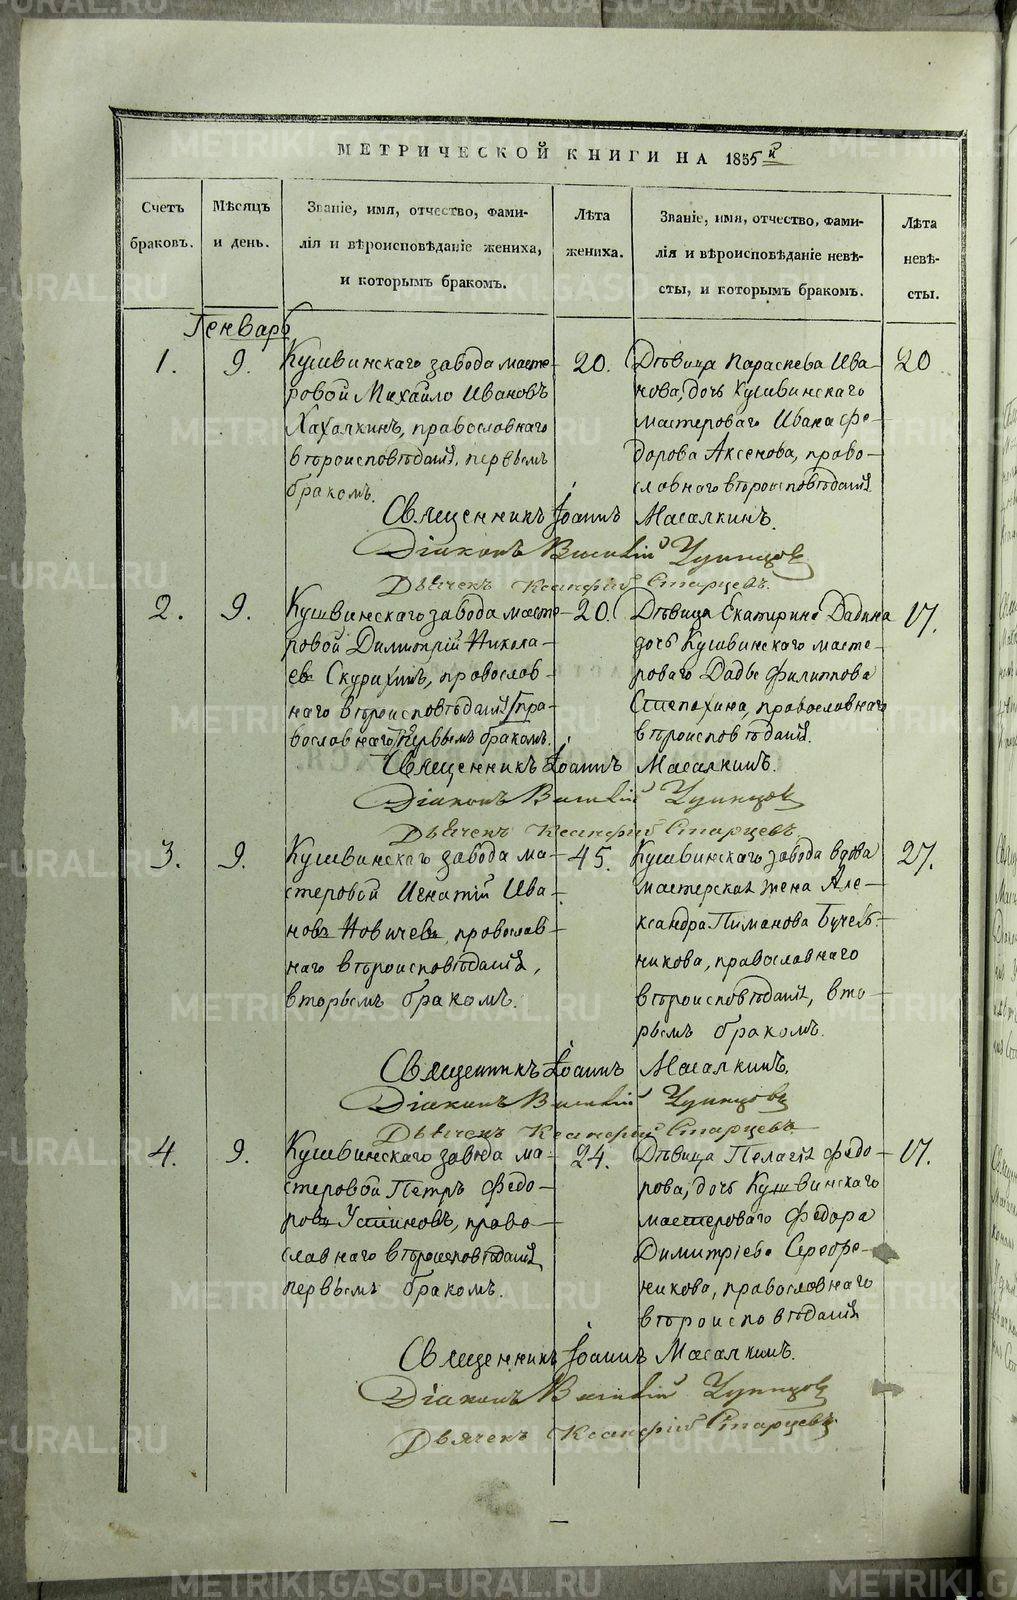 МЕТРИЧЕСКОЙ КНИГИ НА 1855й
Счетъ
браковъ.
Мѣсяцъ
и день.
Званіе, имя, отчество, фами-
лія и вѣроисповѣданіе жениха,
и которымъ бракомъ.
Лѣта
жениха.
Званіе, имя, отчество, фами-
лія и вѣроисповѣданіе невѣ-
сты, и которымъ бракомъ.
Лѣта
невѣ-
сты.
Генварь
1.
9.
Кушвинскаго завода масте-
ровой Михайло Ивановъ
Хахалкинъ, православнаго
вѣроисповѣданія, первымъ
бракомъ.
20.
Дѣвица Параскева Ива-
нова, дочь Кушвинскаго
мастероваго Ивана Фе-
дорова Аксенова, право-
славнаго вѣроисповѣданія
20
Священникъ Іоаннъ Масалкинъ.
Діаконъ Василій
Дьячекъ Ксенофій Старцевъ.
2.
9.
Кушвинскаго завода масте-
ровой Димитрій Никола-
ев Скурихинъ, православ-
наго вѣроисповѣданія/пра-
вославнаго/первымъ бракомъ.
20.
Дѣвица Екатерина Давыдова
дочь Кушвинскаго масте-
роваго Давыда Филиппова
православнаго
вѣроисповѣданія.
17.
Священникъ Іоаннъ Масалкинъ.
Діаконъ Василій
Дьячекъ Ксенофій Старцевъ.
3.
9.
Кушвинскаго завода ма-
стеровой Игнатій Ива-
новъ Новичевъ, православ-
наго вѣроисповѣданія,
вторымъ бракомъ.
45.
Кушвинскаго завода вдова
мастерская жена Але-
ксандра Пиманова Бучель-
никова, православнаго
вѣроисповѣданія, вто-
рымъ бракомъ.
27.
Священникъ Іоаннъ Масалкинъ.
Діаконъ Василій
Дьячекъ Ксенофій Старцевъ
4.
9.
Кушвинскаго завода ма-
стеровой Петръ Федо-
ровъ Устиновъ, право-
славнаго вѣроисповѣданія,
первымъ бракомъ.
24.
Дѣвица Пелагія Федо-
рова, дочь Кушвинскаго
мастероваго Федора
Димитріева Серебре-
никова, православнаго
вѣроисповѣданія
17.
Священникъ Іоаннъ Масалкинъ.
Діаконъ Василій
Дьячекъ Ксенофій Старцевъ
METRIKI.GASO-URAL.RU